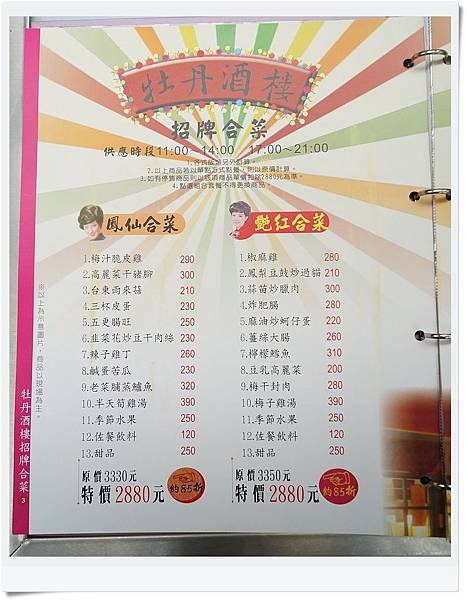 牡丹酒樓
招牌合菜
供應時段11:00~14:00 17:00~21:00
1.各式飯類另外計算。
2.以上商品若以單點方式點餐，則以原價計算。
3.如有停售商品則以該項商品單價扣掉2880元為準。
4.點選組合套餐不得更換商品。
鳳仙合菜
1.梅汁脆皮雞 290
2.高麗菜干豬腳 300
3.台東雨來菇 210
4.三杯皮蛋 230
5.五更腸旺 250
6.韭菜花炒豆干肉絲 230
7.辣子雞丁 260
8.鹹蛋苦瓜 230
9.老菜脯蒸鱸魚 320
10.半天筍雞湯 390
11.季節水果 250
12.佐餐飲料 120
13.甜品 250
原價3330元
特價2880元
約85折
艷紅合菜
1.椒麻雞 280
2.鳳梨豆鼓炒過貓 210
3.蒜苗炒臘肉 300
4.炸肥腸 280
5.麻油炒蚵仔蛋 220
6.薑絲大腸 260
7.檸檬鱈魚 310
8.豆乳高麗菜 200
9.梅干封肉 280
10.梅子雞湯 390
11.季節水果 250
12.佐餐飲料 120
13.甜品 250
原價3350元
特價2880元
約85折
※以上為示意圖片，商品以現場為主。
牡丹酒樓招牌合菜
3